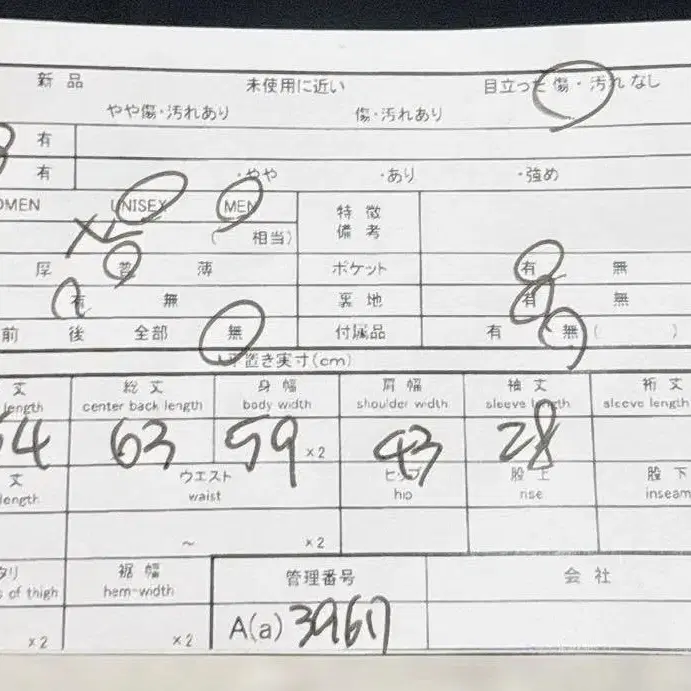 新品 未使用に近い 目立った傷・汚れなし
やや傷・汚れあり 傷・汚れあり
有
有 ・やや ・あり ・強め
OMEN UNISEX MEN 特徴
XL (相当) 備考
厚 普 薄 ポケット 有 無
有 無 裏地 有 無
前 後 全部 無 付属品 有 無 ( )
平置き実寸(cm)
丈 総丈 身幅 肩幅 袖丈 裄丈
length center back length body width shoulder width sleeve length sleeve length
54 63 59 ×2 43 28
丈 ウエスト ヒップ 股上 股下
length waist hip rise inseam
~ ×2
タリ 裾幅 管理番号 会社
s of thigh hem-width
×2 ×2 A(a)